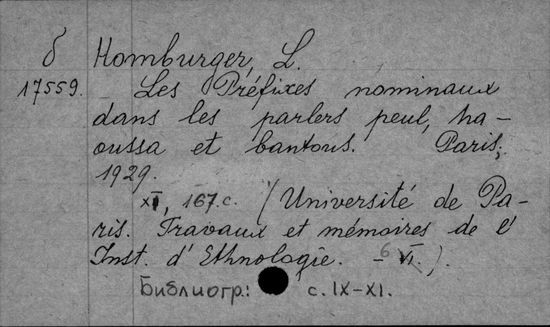 б Homburger, L.
17559. Les Préfixes nominaux
dans les parlers peul, ha-
oussa et bantous. Paris,
1929.
XI, 167 с. (Université de Pa-
ris. Travaux et mémoires de l'
Inst. d'Ethnologie. - VI.).
Библиогр.: с. IX-XI.